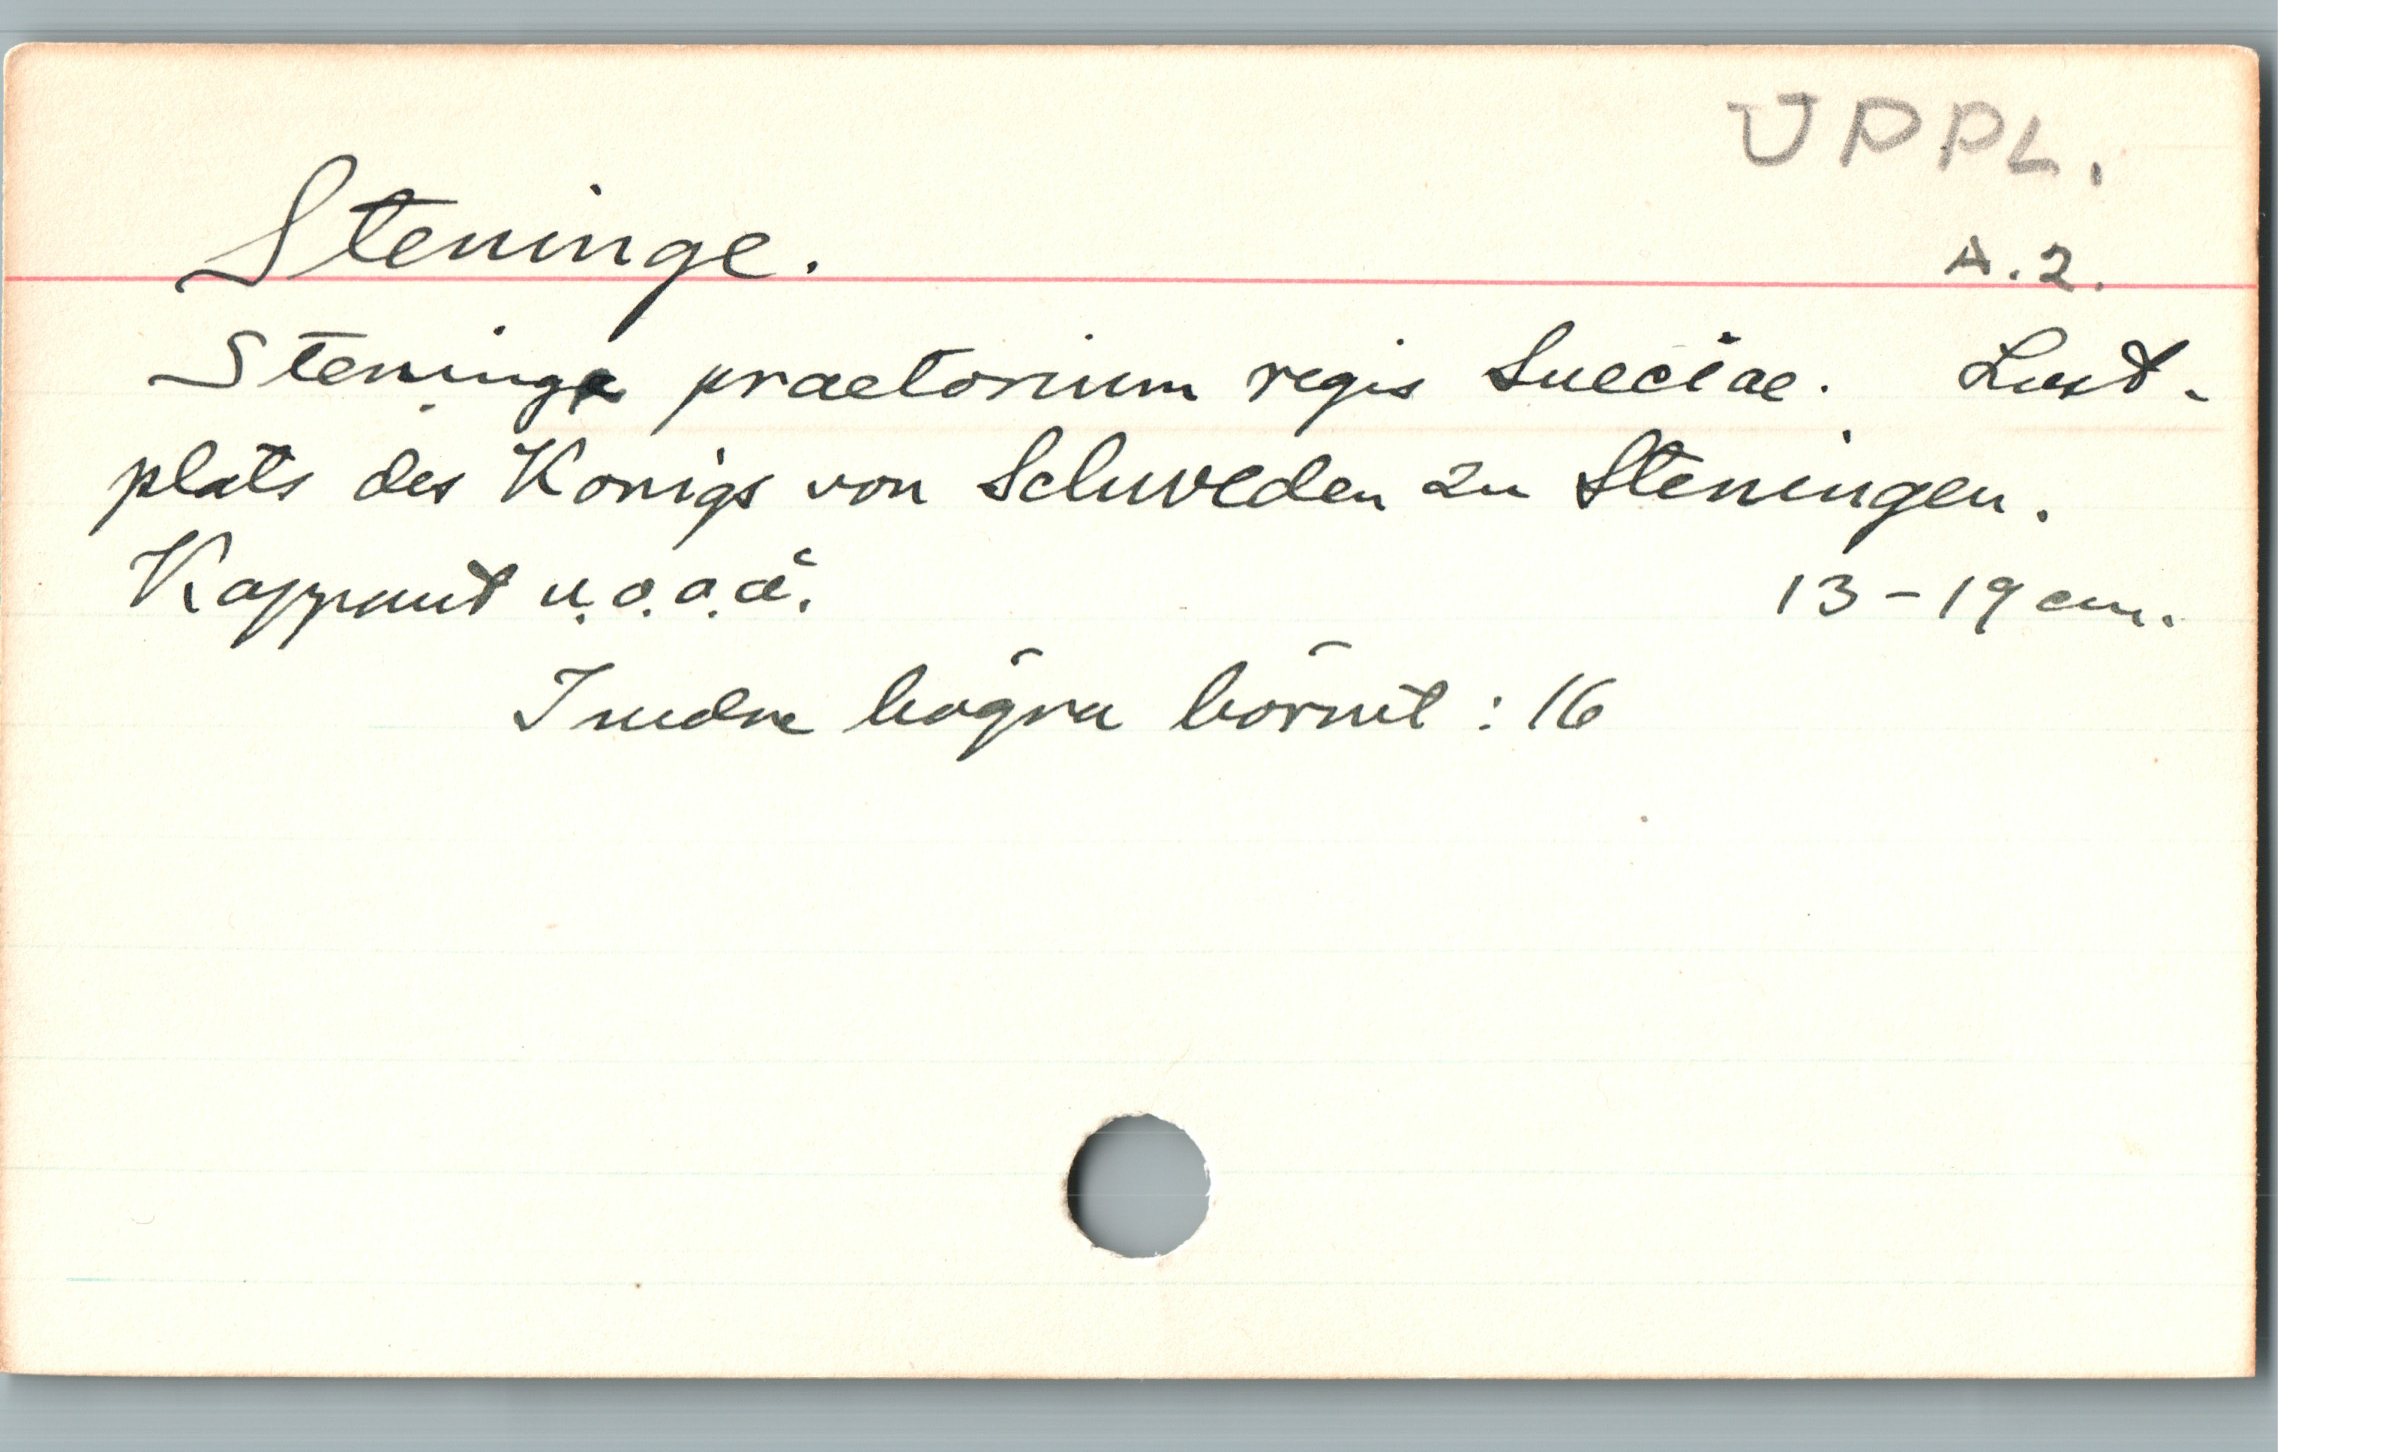 UPPL.
Steninge.
A.2.
Steninge praetorium regis Sueciae. Lust-
plats des Konigs von Schweden zu Steningen.
Kopparst u.o.o.å. 13-19 cm.
I nedre högra hörnet : 16